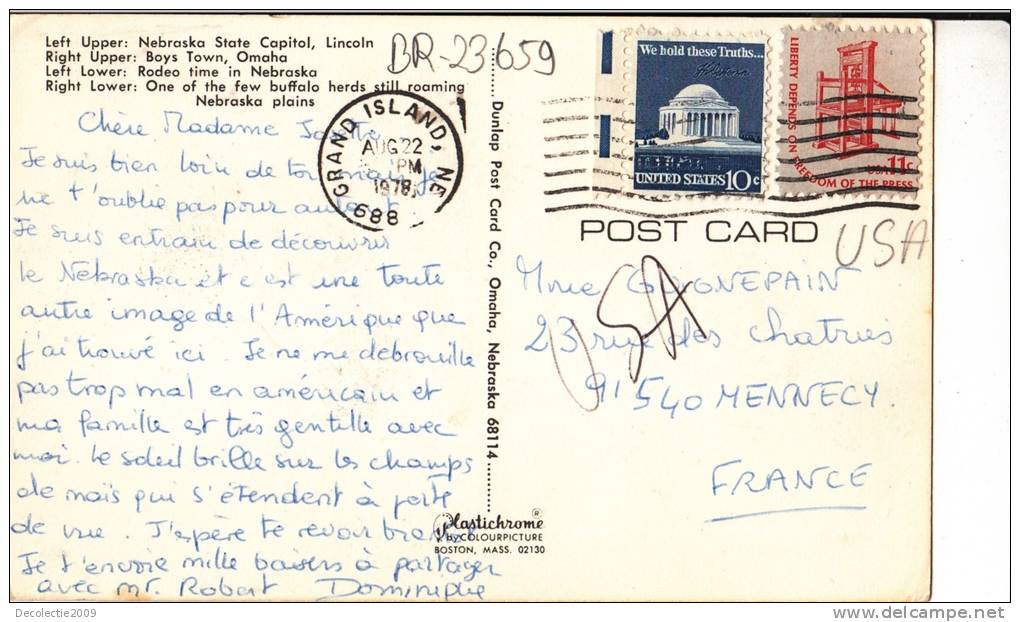 Left Upper: Nebraska State Capitol, Lincoln
Right Upper: Boys Town, Omaha
Left Lower: Rodeo time in Nebraska
Right Lower: One of the few buffalo herds still roaming
Nebraska plains
BR-23.659
Chère Madame
Je suis bien loin de toi mais je
ne t'oublie pas pour autant
Je suis entrain de découvrir
le Nebraska et c'est une toute
autre image de l'Amérique que
j'ai trouvé ici. Je ne me débrouille
pas trop mal en américain et
ma famille est très gentille avec
moi. Le soleil brille sur les champs
de maïs qui s'étendent à perte
de vue. J'espère te revoir
Je t'envoie mille baisers à partager
avec Mr. Robert Dominique
GRAND ISLAND, NE
AUG 22
PM
1978
688
Dunlap Post Card Co., Omaha, Nebraska 68114
Plastichrome ®
by COLOURPICTURE
BOSTON, MASS. 02130
We hold these Truths...
UNITED STATES 10c
LIBERTY DEPENDS ON FREEDOM OF THE PRESS
USA 11c
POST CARD
USA
Mme GUYONEPAIN
23 rue des chatries
91540 MENNECY.
FRANCE
USA
Decolectie2009
www.delcampe.net